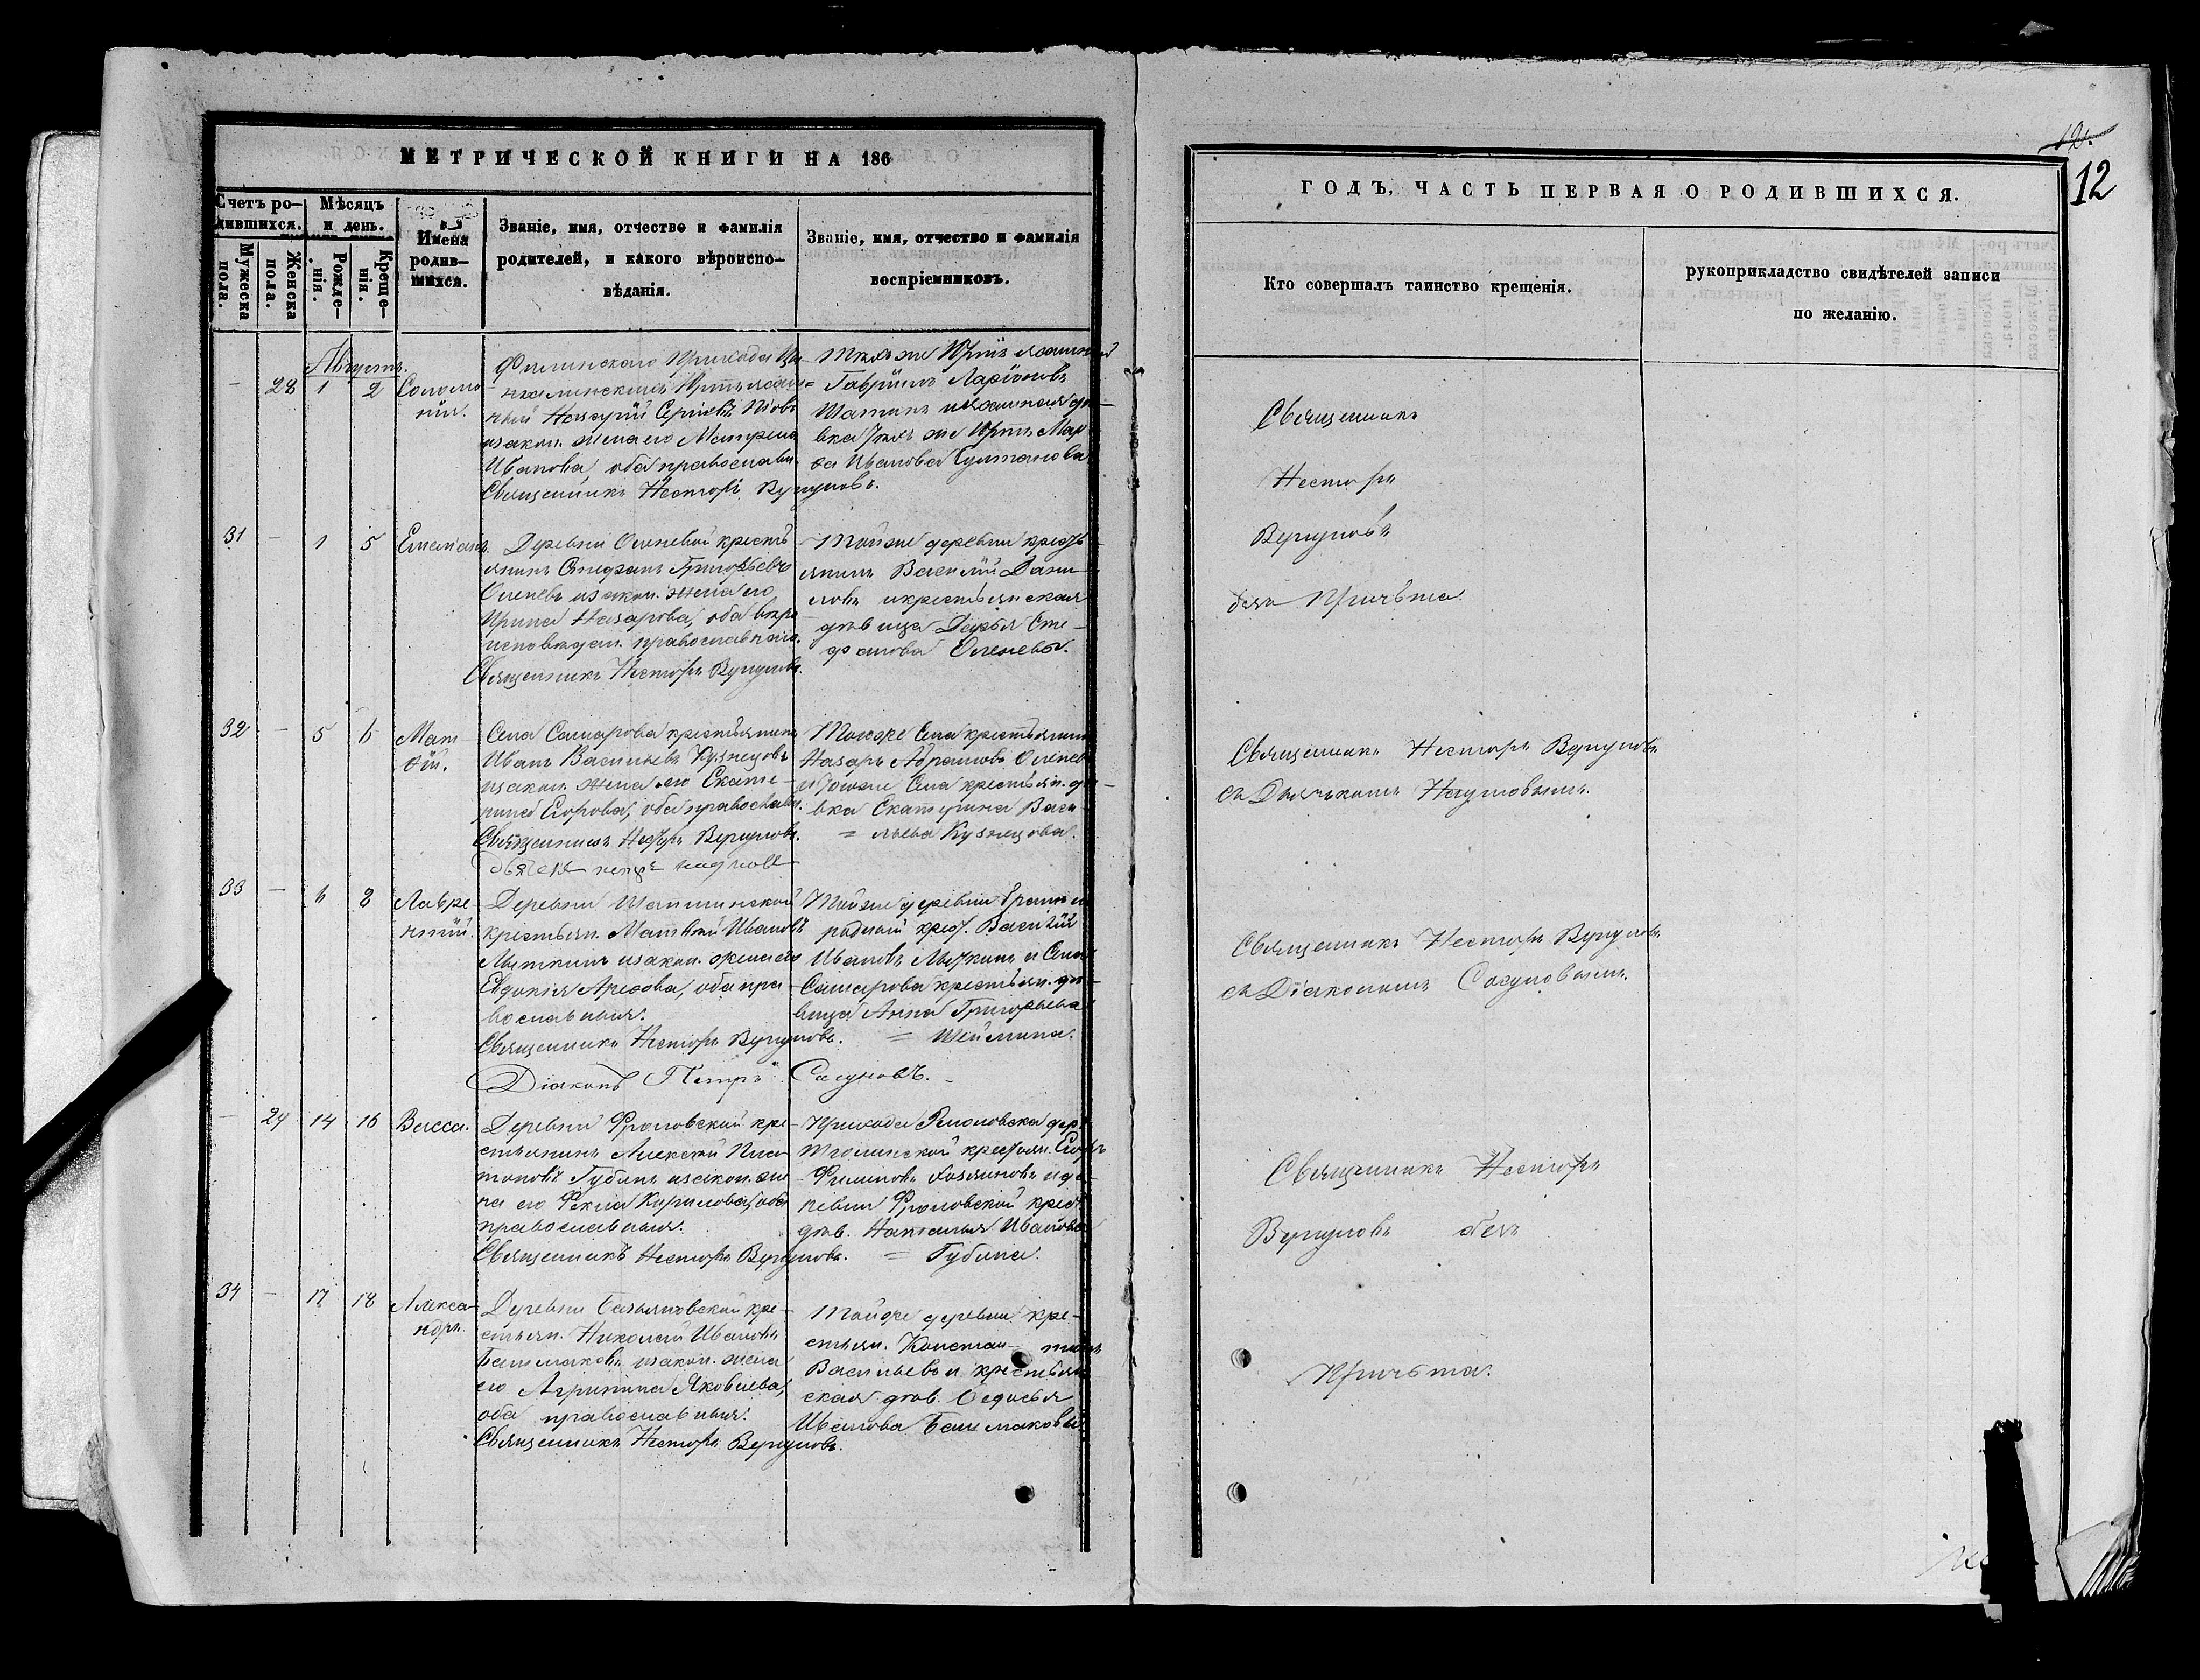 12.
12
МЕТРИЧЕСКОЙ КНИГИ НА 186
ГОДЪ, ЧАСТЬ ПЕРВАЯ О РОДИВШИХСЯ.
Счетъ ро-
дившихся.
Мужеска
пола.
Женска
пола.
Мѣсяцъ
и день.
Рожде-
нія.
Креще-
нія.
Имена
родив-
шихся.
Званіе, имя, отчество и фамилія
родителей, и какого вѣроиспо-
вѣданія.
Званіе, имя, отчество и фамилія
воспріемниковъ.
Кто совершалъ таинство крещенія.
рукоприкладство свидѣтелей записи
по желанію.
Августъ.
- 28 1 2
Соломо-
нія.
Филинскаго Прихода
Назарій Сергѣевъ
и закон. жена его Матрена
Иванова, оба православн.
Священникъ Несторъ Вергуновъ.
Тѣхъ же Юртъ ясашный
Гавріилъ Ларіоновъ
Шатинъ и ясашная дѣ-
вка тѣхъ же Юртъ Мар-
ѳа Иванова Султанова
Священникъ
Несторъ
Вергуновъ
безъ Причьта
31 - 1 5
Емеліанъ.
Деревни Оленевой кресть-
янинъ Стефанъ Григорьевъ
Оленевъ и закон. жена его
Ирина Назарова, оба вѣро-
исповѣдан. православнаго.
Священникъ Несторъ Вергуновъ.
Той же деревни кресть-
янинъ Василій Дани-
ловъ и крестьянская
дѣвица Дарья Сте-
фанова Оленевы.
32 - 5 6
Мат-
ѳій.
Села Самарова крестьянинъ
Иванъ Васильевъ Кузнецовъ
и закон. жена его Екате-
рина Егорова, оба православн.
Священникъ Несторъ Вергуновъ.
Дьячекъ Наумовъ
Того же Села крестьянинъ
Назаръ Абрамовъ Оленевъ
и того же Села крестьян. дѣ-
вка Екатерина Васи-
= льева Кузнецова.
Священникъ Несторъ Вергуновъ
съ Дьячькомъ Наумовымъ.
33 - 6 8
Лавре-
нтій.
Деревни Шапшинской
крестьян. Матвѣй Ивановъ
Лыткинъ и закон. жена его
Евдокія Арефова, оба пра-
вославныя.
Священникъ Несторъ Вергуновъ.
Діаконъ Петръ Сосуновъ.
Той же деревни
родный крест. Василій
Ивановъ Лыткинъ и Села
Самарова крестьян. дѣ-
вица Анна Григорьева
= Шеймина.
Священникъ Несторъ Вергуновъ
съ Діакономъ Сосуновымъ.
- 29 14 16
Васса.
Деревни Фроловской кре-
стьянинъ Алексѣй
Губинъ и закон. же-
на его Фекла Кирилова, оба
православныя.
Священникъ Несторъ Вергуновъ.
Прихода дер.
крестьян. Егоръ
Филиповъ и де-
ревни Фроловской крест.
дѣв. Наталья Иванова
= Губина.
Священникъ Несторъ
Вергуновъ безъ
34 - 17 18
Алекса-
ндръ.
Деревни Базьяновской кре-
стьян. Николай Ивановъ
Башмаковъ и закон. жена
его Агрипина Яковлева,
оба православныя.
Священникъ Несторъ Вергуновъ.
Той же деревни кре-
стьян. Констан- тинъ
Васильевъ и крестьян-
ская дѣв. Ѳедосья
Иванова Башмаковы.
Причьта.